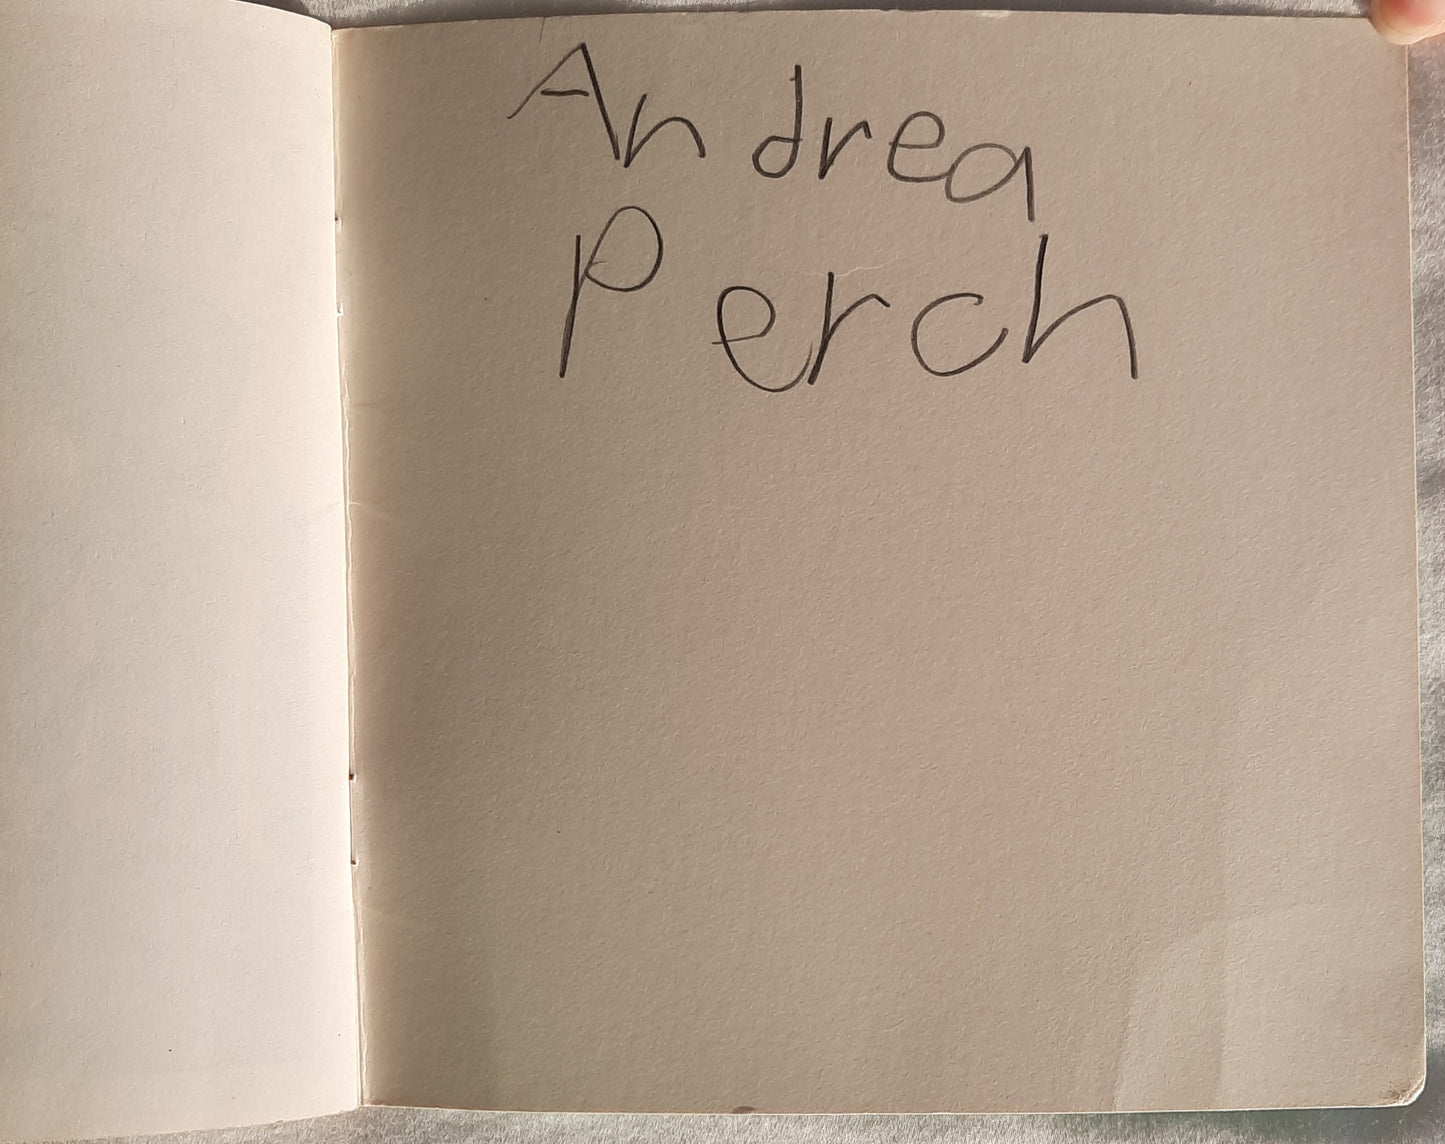 Andrea
Perch